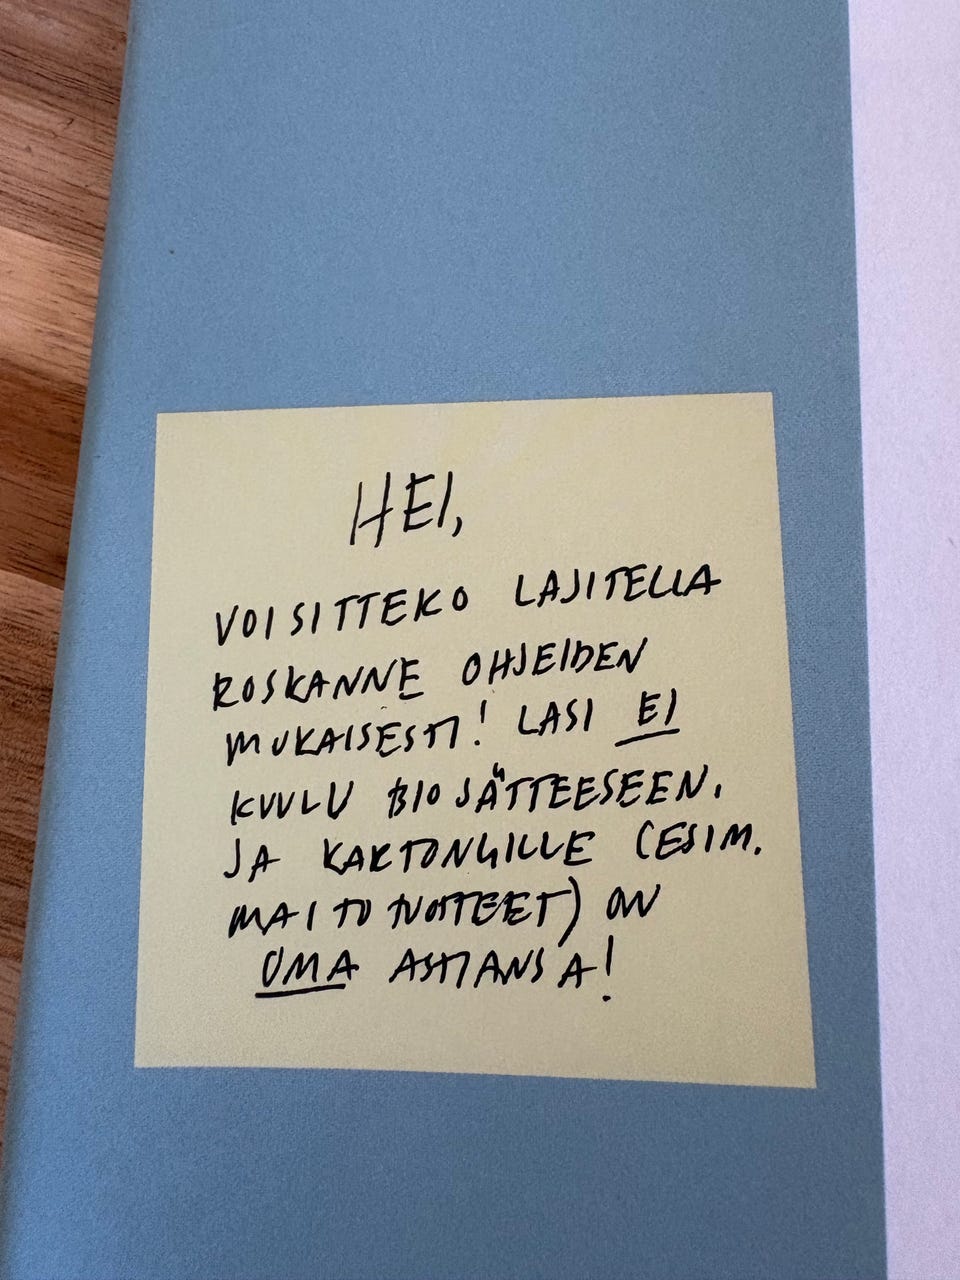 HEI,
VOISITTEKO LAJITELLA
ROSKANNE OHJEIDEN
MUKAISESTI! LASI EI
KUULU BIOJÄTTEESEEN.
JA KARTONGILLE (ESIM.
MAITOTUOTTEET) ON
OMA ASTIANSA!